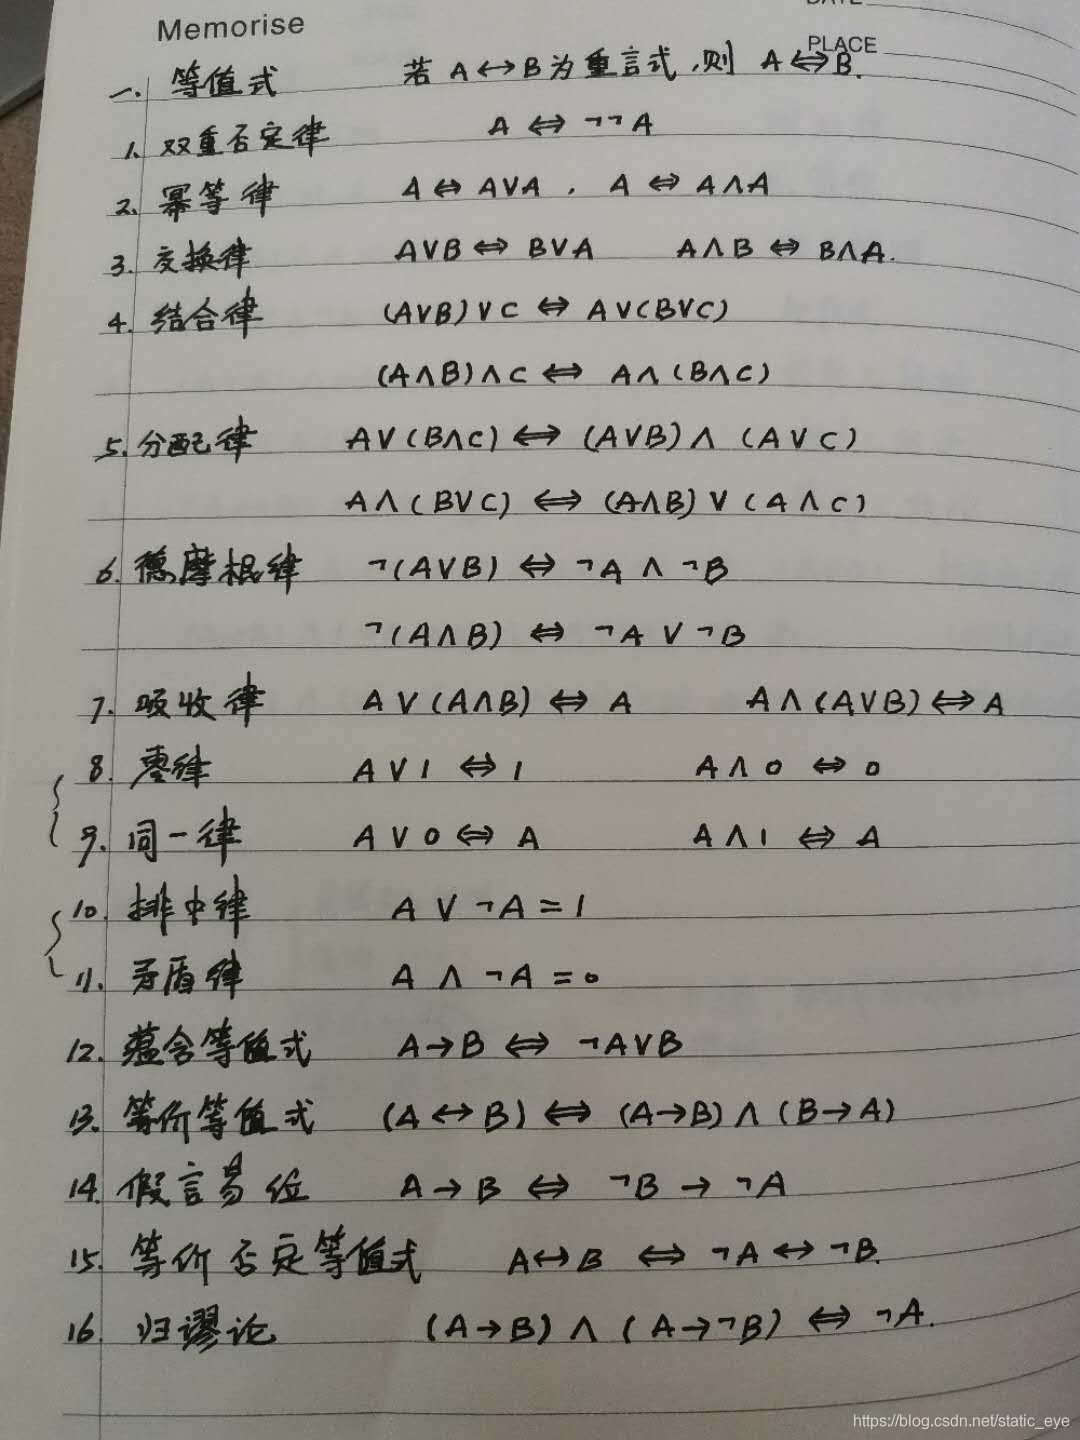 Memorise
DATE
PLACE
一. 等值式 若 A↔B为重言式,则 A⇔B.
1. 双重否定律 A ⇔ ¬¬A
2. 幂等律 A ⇔ A∨A , A ⇔ A∧A
3. 交换律 A∨B ⇔ B∨A A∧B ⇔ B∧A.
4. 结合律 (A∨B)∨C ⇔ A∨(B∨C)
(A∧B)∧C ⇔ A∧(B∧C)
5. 分配律 A∨(B∧C) ⇔ (A∨B)∧(A∨C)
A∧(B∨C) ⇔ (A∧B)∨(A∧C)
6. 德摩棍律 ¬(A∨B) ⇔ ¬A ∧ ¬B
¬(A∧B) ⇔ ¬A ∨ ¬B
7. 吸收律 A∨(A∧B) ⇔ A A∧(A∨B) ⇔ A
8. 零律 A∨1 ⇔ 1 A∧0 ⇔ 0
9. 同一律 A∨0 ⇔ A A∧1 ⇔ A
10. 排中律 A ∨ ¬A = 1
11. 矛盾律 A ∧ ¬A = 0
12. 蕴含等值式 A→B ⇔ ¬A∨B
13. 等价等值式 (A↔B) ⇔ (A→B)∧(B→A)
14. 假言易位 A→B ⇔ ¬B→¬A
15. 等价否定等值式 A↔B ⇔ ¬A↔¬B.
16. 归谬论 (A→B)∧(A→¬B) ⇔ ¬A.
https://blog.csdn.net/static_eye